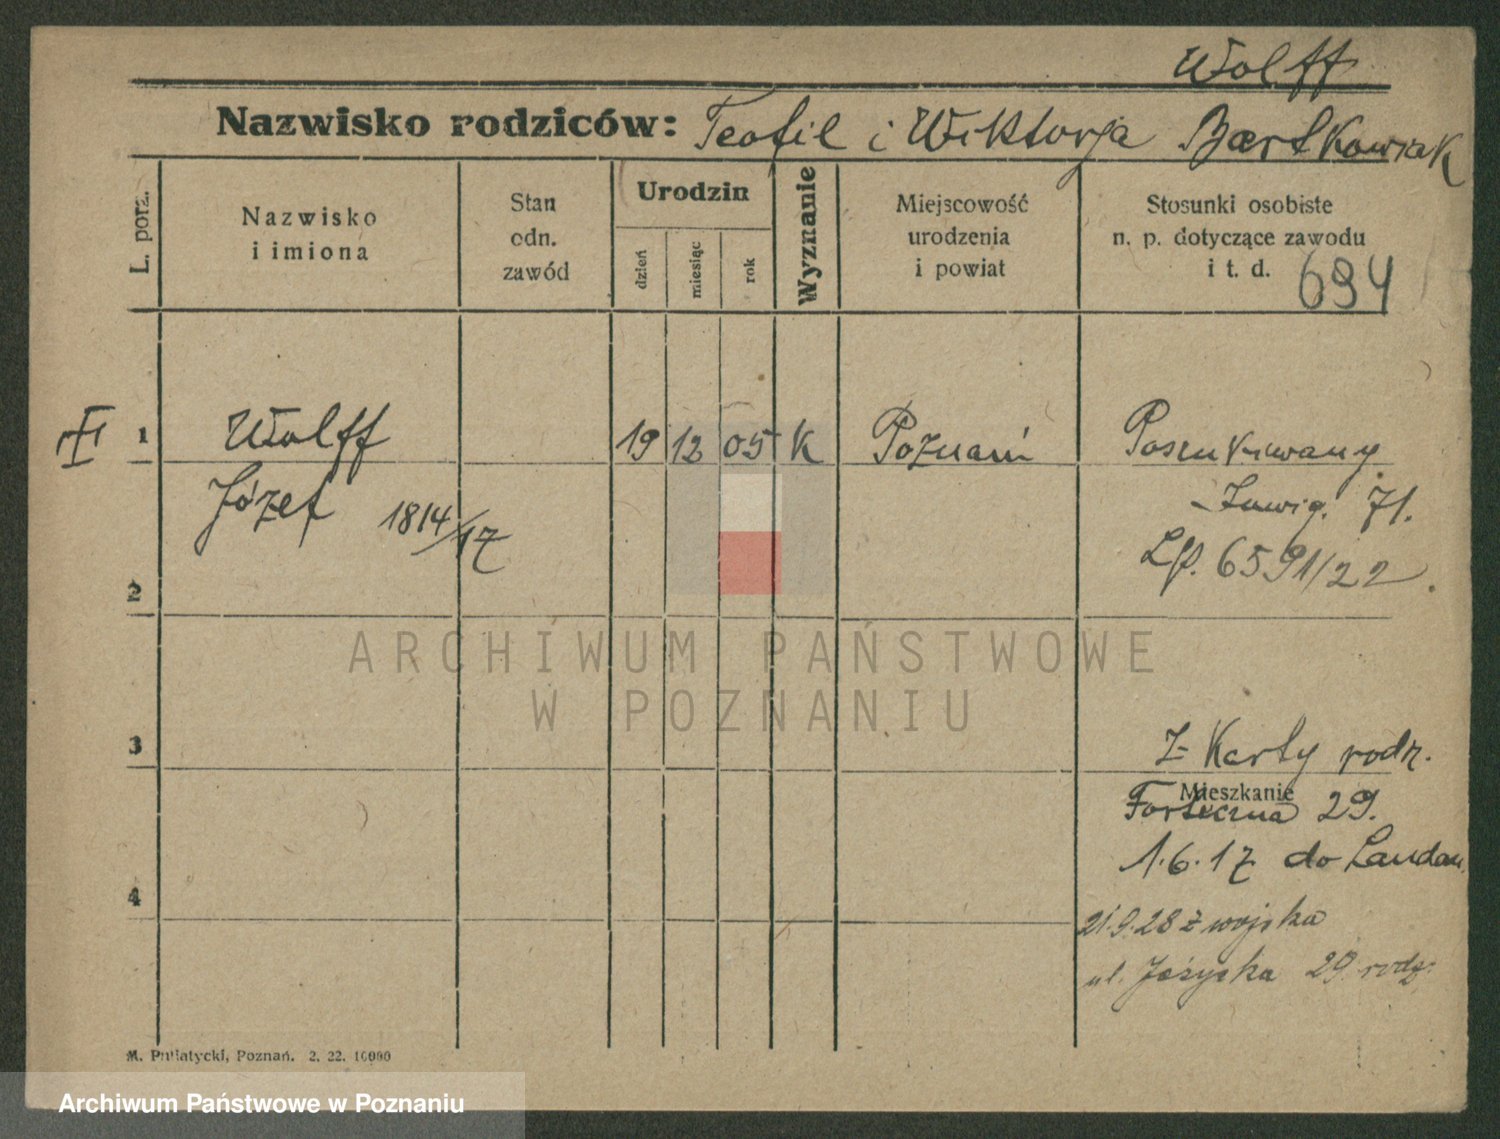 Wolff
Nazwisko rodziców: Teofil i Wiktorja Bartkowiak
L. porz.
Nazwisko
i imiona
Stan
odn.
zawód
Urodzin
dzień
miesiąc
rok
Wyznanie
Miejscowość
urodzenia
i powiat
Stosunki osobiste
n. p. dotyczące zawodu
i t. d. 694
1 Wolff 19 12 05 K Poznań Poszukiwany
Józef 1814/17
71.
Lp. 6591/22.
2
ARCHIWUM PAŃSTWOWE
W POZNANIU
3
Z Karty rodz.
Mieszkanie
Forteczna 29.
1.6.17 do Landau
4
21.9.28 z wojska
ul. Jeżycka 29 rodz.
M. Putiatycki, Poznań. 2. 22. 10000
Archiwum Państwowe w Poznaniu